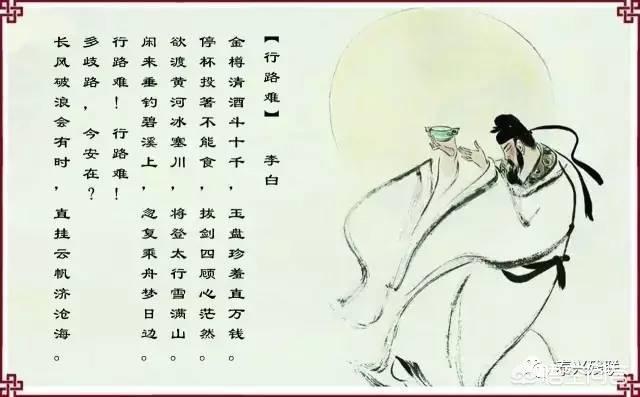 【行路难】 李白
金樽清酒斗十千，玉盘珍羞直万钱。
停杯投箸不能食，拔剑四顾心茫然。
欲渡黄河冰塞川，将登太行雪满山。
闲来垂钓碧溪上，忽复乘舟梦日边。
行路难！行路难！
多歧路，今安在？
长风破浪会有时，直挂云帆济沧海。
泰兴残联